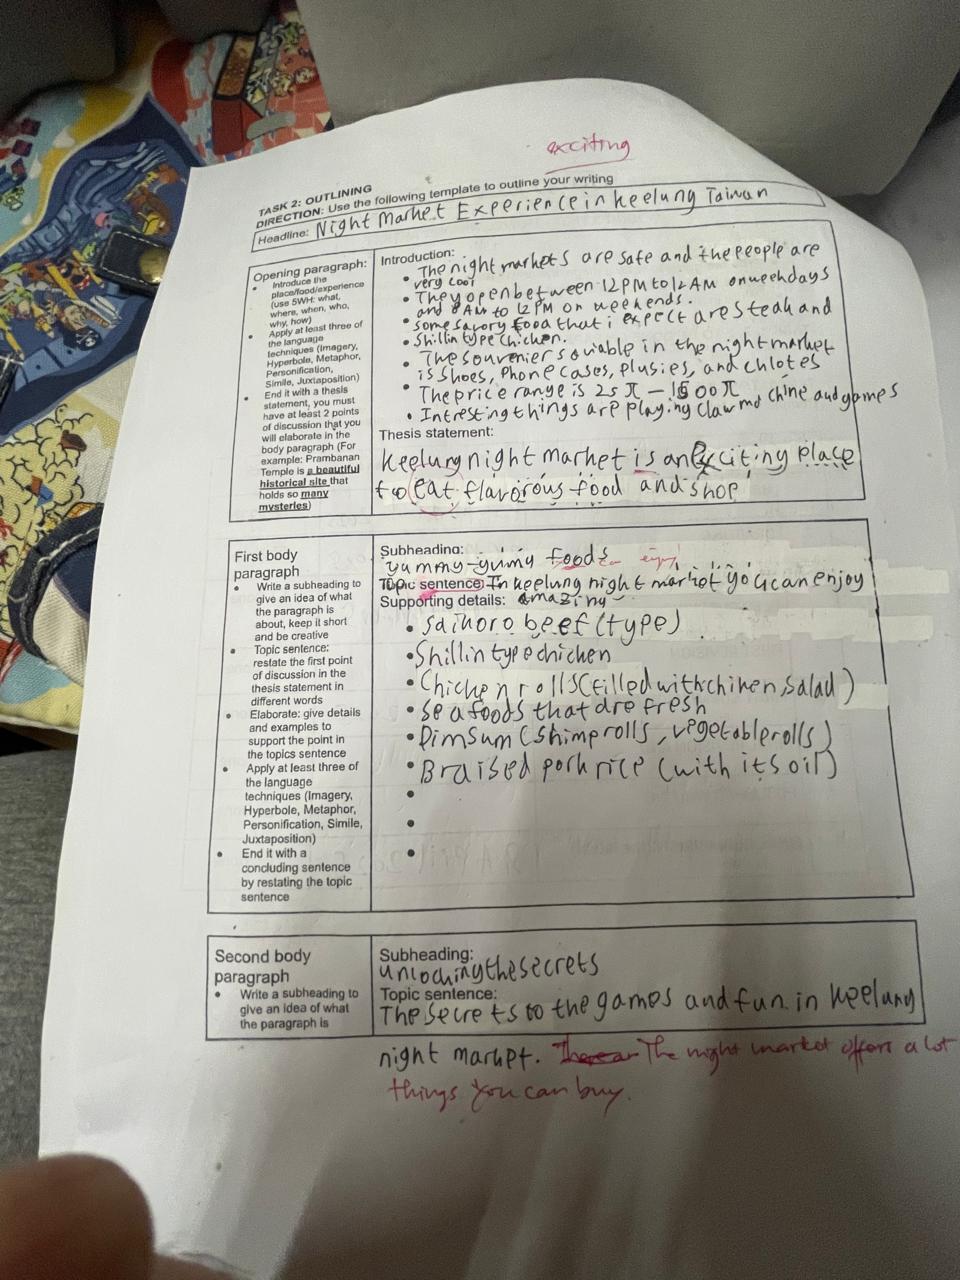 exciting
TASK 2: OUTLINING
DIRECTION: Use the following template to outline your writing
Headline: Night Market Experience in keelung Taiwan
Opening paragraph:
• Introduce the
place/food/experience
(use 5WH: what,
where, when, who,
why, how)
• Apply at least three of
the language
techniques (Imagery,
Hyperbole, Metaphor,
Personification,
Simile, Juxtaposition)
• End it with a thesis
statement, you must
have at least 2 points
of discussion that you
will elaborate in the
body paragraph (For
example: Prambanan
Temple is a beautiful
historical site that
holds so many
mysteries)
Introduction:
• The night markets are safe and the people are
very cool
• They open between 12 PM to 12 AM on weekdays
and 8 AM to 12 PM on weekends.
• some savory food that i expect are steak and
• Shillin type chicken.
• The souveniers aviable in the night market
is shoes, Phone cases, plusies, and chlotes
• The price range is 25 元 - 1500 元
• Intresting things are playing claw machine and games
Thesis statement:
keelung night market is an Exciting place
to eat flavorous food and shop
First body
paragraph
• Write a subheading to
give an idea of what
the paragraph is
about, keep it short
and be creative
• Topic sentence:
restate the first point
of discussion in the
thesis statement in
different words
• Elaborate: give details
and examples to
support the point in
the topics sentence
• Apply at least three of
the language
techniques (Imagery,
Hyperbole, Metaphor,
Personification, Simile,
Juxtaposition)
• End it with a
concluding sentence
by restating the topic
sentence
Subheading:
yummy-yumy foods
Topic sentence: In keelung night market you can enjoy
Supporting details: amazing
• Saikoro beef (type)
• Shillin type chicken
• Chicken rolls (filled with chiken, salad)
• sea foods that are fresh
• Dimsum (shimp rolls, vegetable rolls)
• Braised pork rice (with its oil)
Second body
paragraph
• Write a subheading to
give an idea of what
the paragraph is
Subheading:
unlocking the secrets
Topic sentence:
The secrets to the games and fun in keelung
night market. The night market offers a lot
things you can buy.